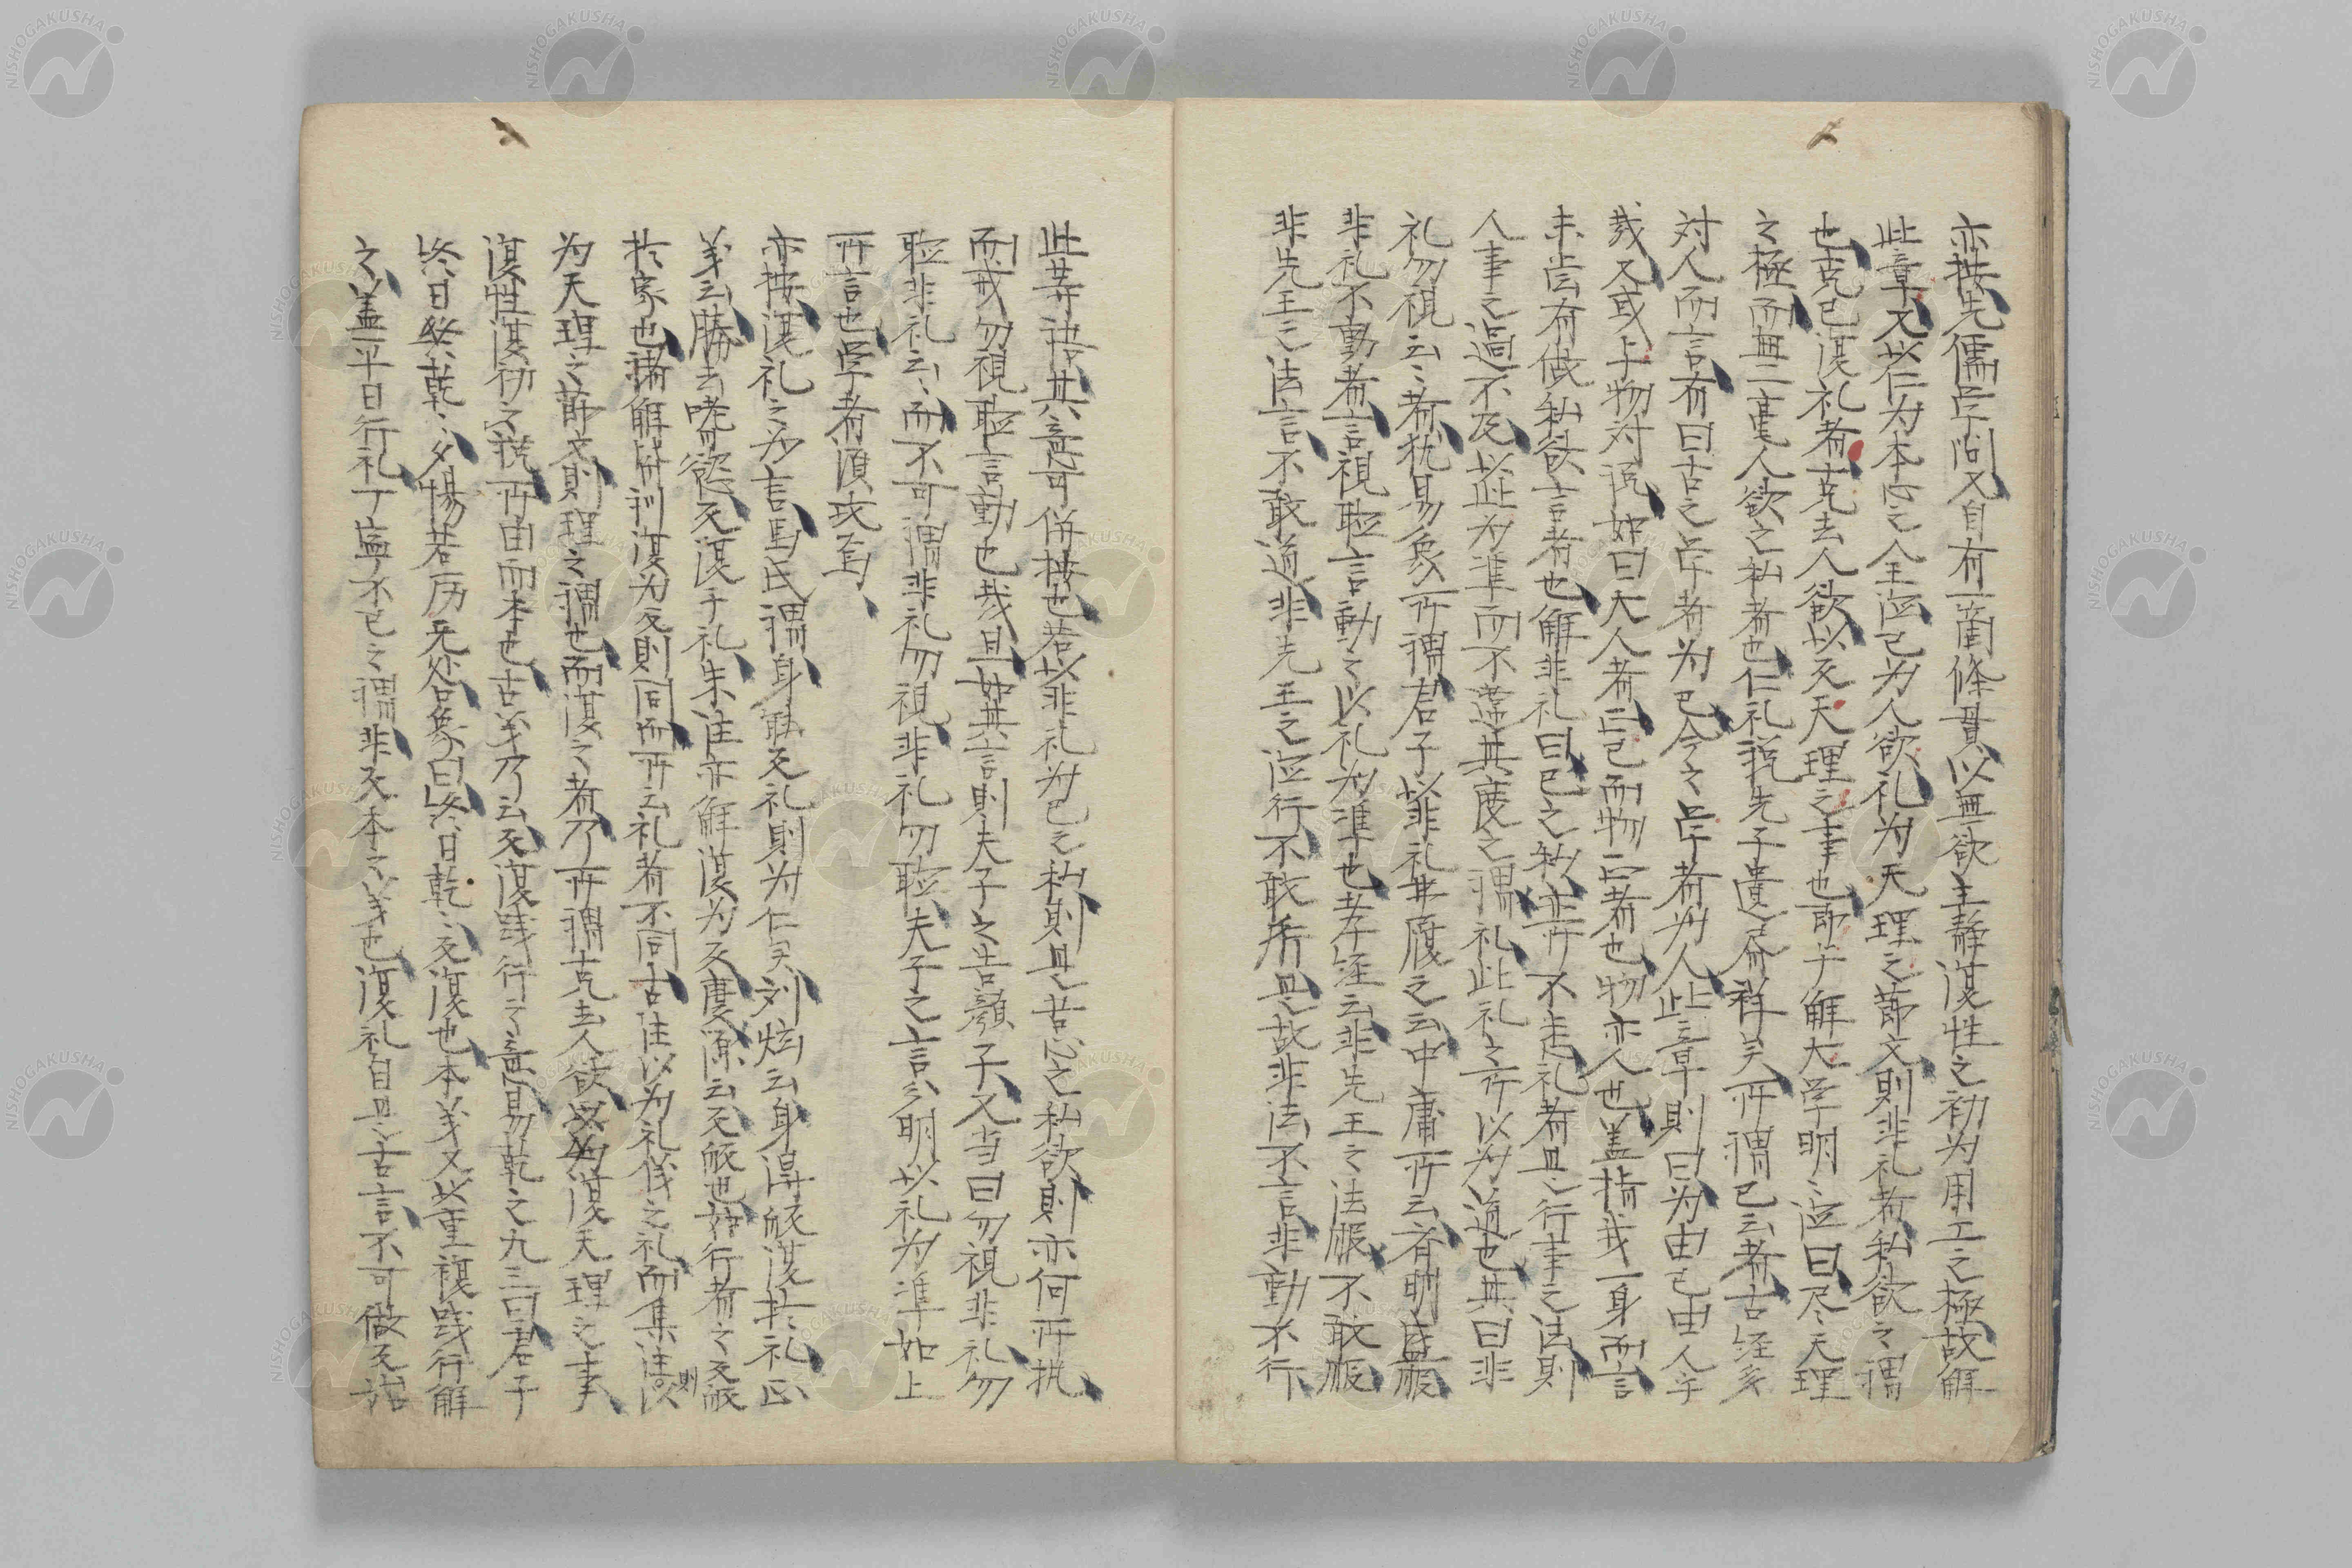 亦按先儒学问又自有一箇條貫以無欲主静復性之初为用工之極故解
此章又以仁为本心之全德己为人欲礼为天理之節文則非礼者私欲之謂
也克己復礼者克去人欲以反天理之事也即于解大学明〻德曰尽天理
之極而無一毫人欲之私者也仁礼説先子遺尽詳矣所謂己云者古经多
対人而言有曰古之学者为己今之学者为人此章則曰为由己由人乎
哉又或与物対説如曰大人者正己而物正者也物亦人也盖指我一身而言
未尝有做私欲言者也解非礼曰己之私亦所不走礼者是行事之法則
人事之過不及以此为準而不差其度之謂礼此礼之所以为道也其曰非
礼勿視云〻者犹易象所謂君子以非礼弗履之云中庸所云斉明盛服
非礼不動者言視聴言動之以礼为準也孝经云非先王之法服不敢服
非先王之法言不敢道非先王之德行不敢行是故非法不言非動不行
此等語其意可併按也若以非礼为己之私則是苦心之私欲則亦何所执
而戒勿視聴言動也哉且如其言則夫子之告顔子又当曰勿視非礼勿
聴非礼云〻而不可謂非礼勿視非礼勿聴夫子之言分明以礼为準如上
所言也学者須攻焉
亦按復礼之为言馬氏謂身能反礼則为仁矣刘炫云身得能復於礼正
義云勝去嗜慾反復于礼朱注亦解復为反慶源云反厥也如行者之反厥
於家也諸解皆訓復为反則同而所云礼者不同古注以为礼儀之礼而集注則以
为天理之節文則理之謂也而復之者乃所謂克去人欲以为復天理之事
復性復初之説所由而本也古義乃云反復践行之意易乾之九三曰君子
终日乾〻夕惕若厉无咎象曰终日乾〻反復也本義又以重複践行解
之盖平日行礼丁寧不已之謂非反本之義也復礼自是古言不可做反詁